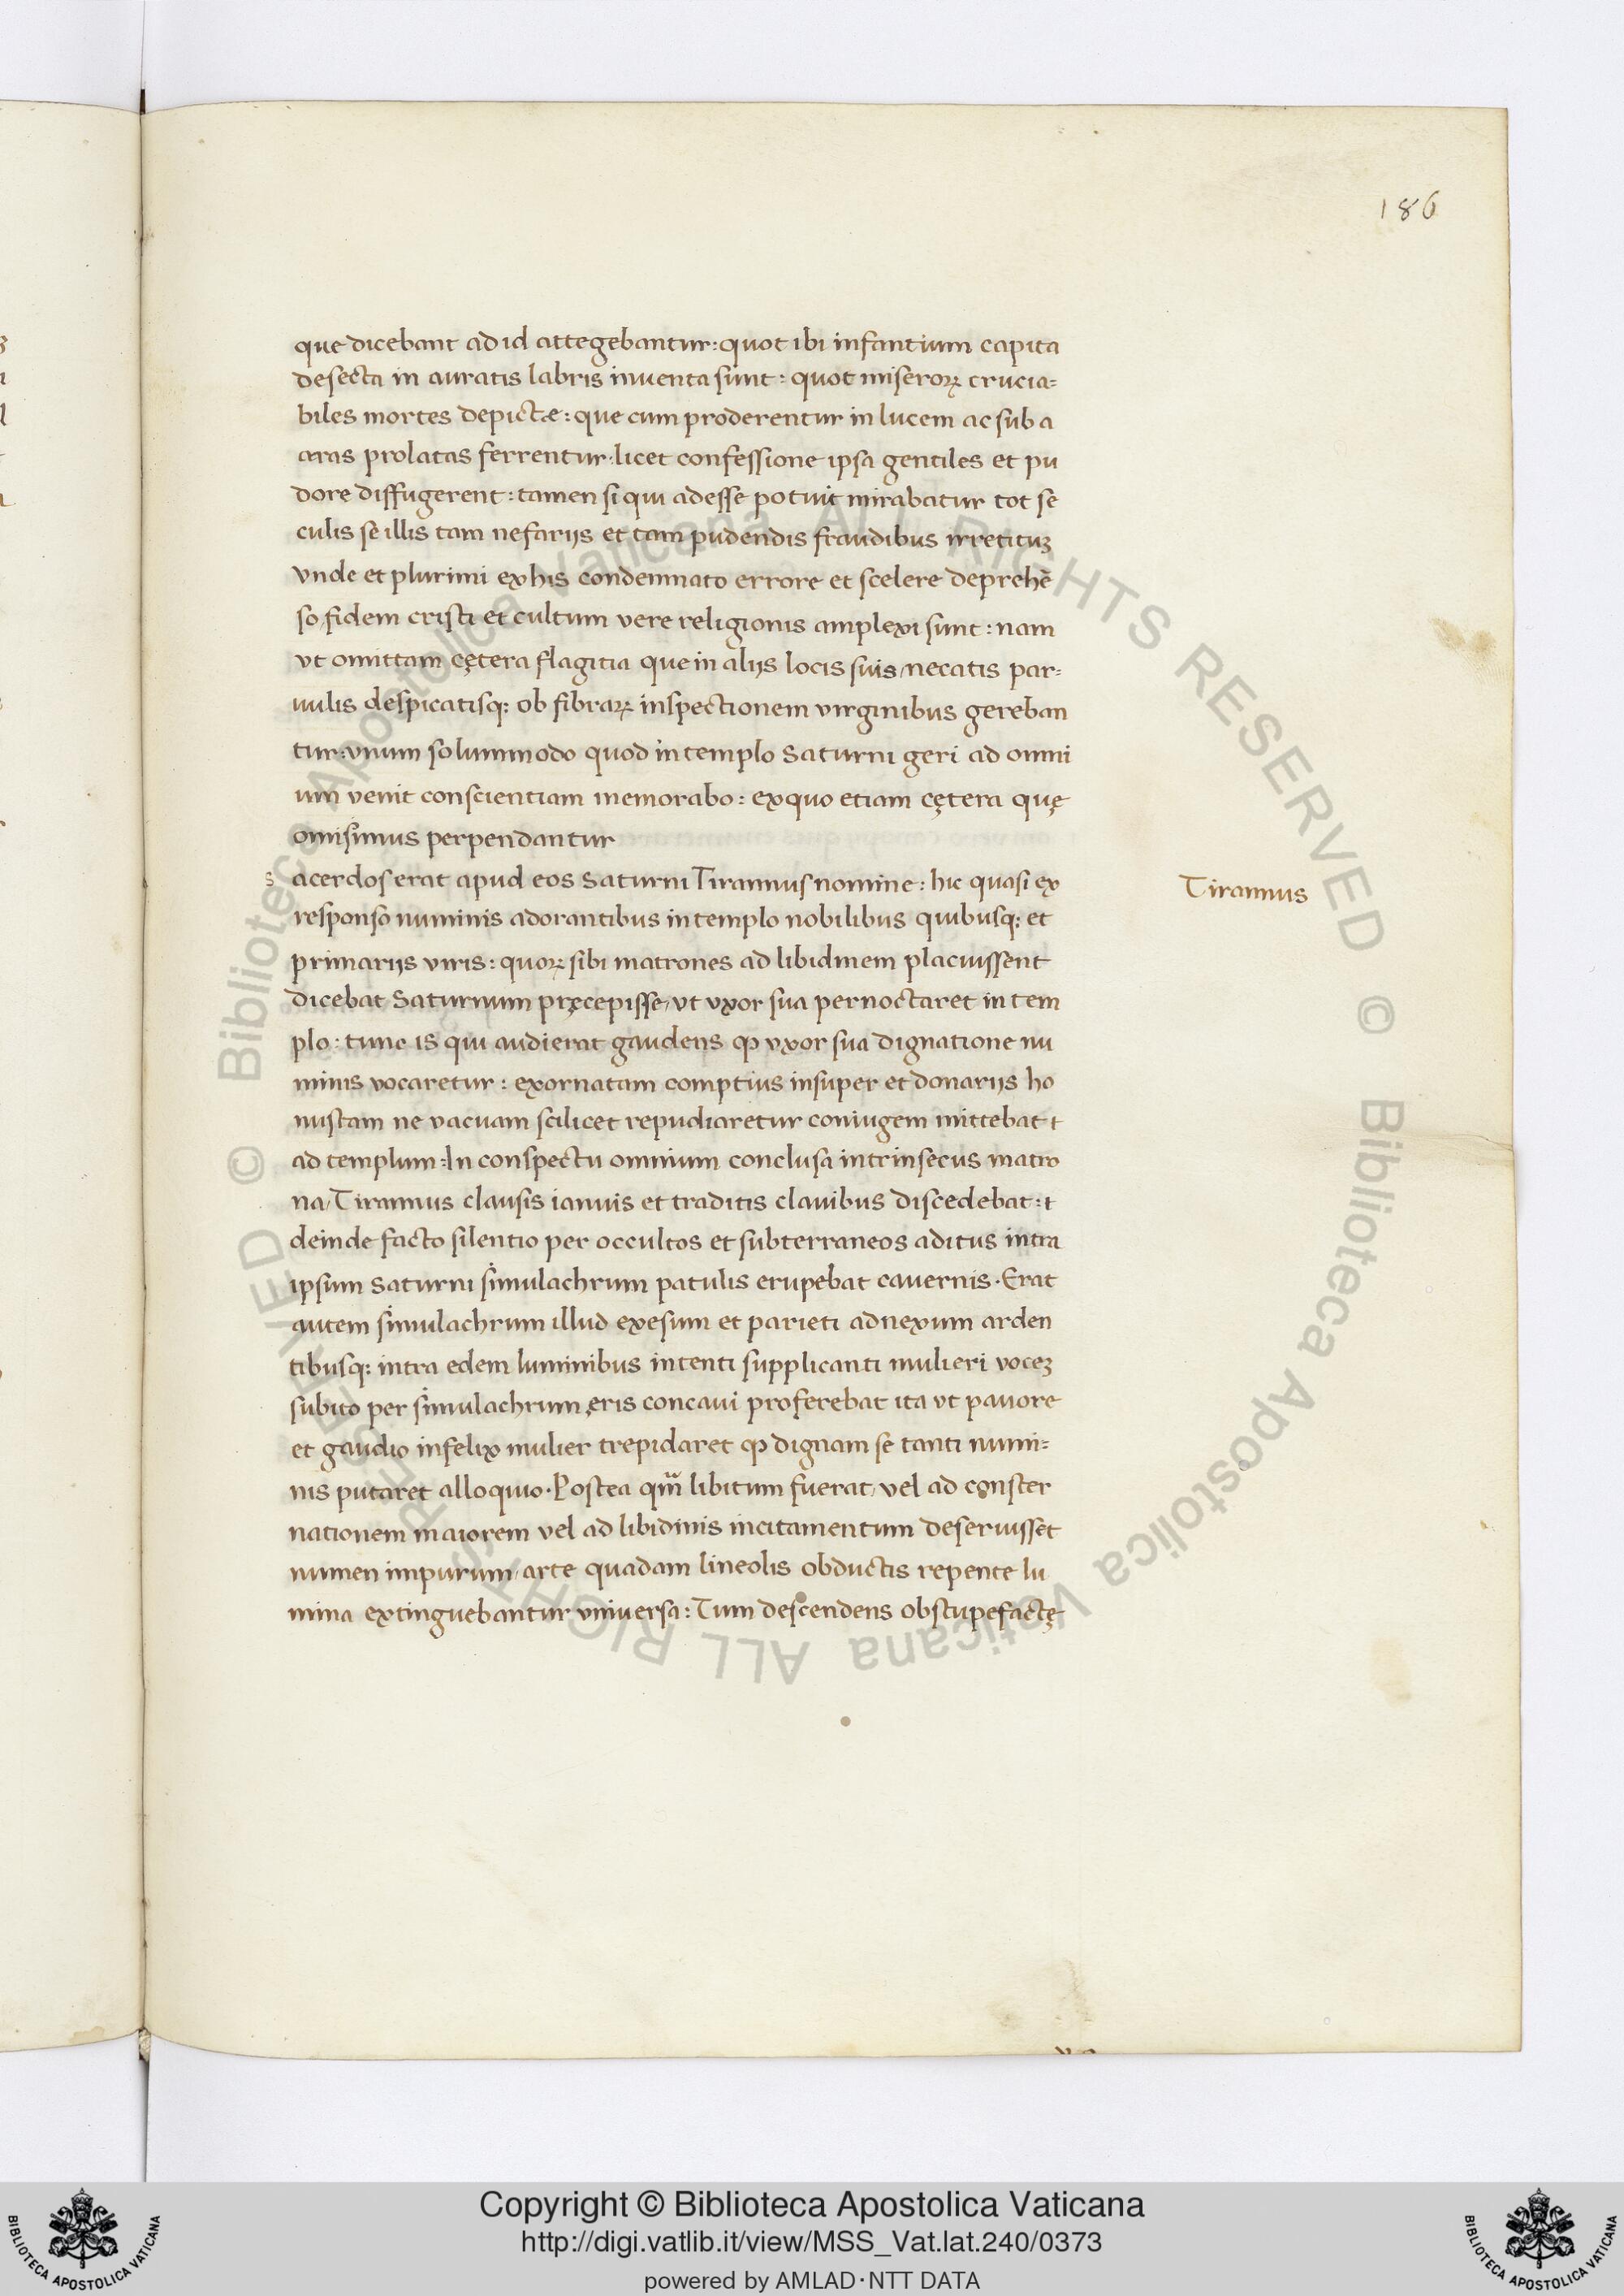 186
que dicebant ad id attegebantur: quot ibi infantium capita
desecta in auratis labris inuenta sunt: quot miseroꝝ crucia=
biles mortes depictæ: que cum proderentur in lucem ac sub a
aras prolatas ferrentur, licet confessione ipsa gentiles et pu
dore diffugerent: tamen si qui adesse potuit mirabatur tot se
culis se illis tam nefarijs et tam pudendis fraudibus irretituꝫ
vnde et plurimi ex his condemnato errore et scelere deprehē
so, fidem cristi et cultum vere religionis amplexi sunt: nam
vt omittam cętera flagitia que in alijs locis suis, necatis par=
uulis despicatisq: ob fibraꝝ inspectionem virginibus gereban
tur: vnum solummodo quod in templo Saturni geri ad omni
um venit conscientiam memorabo: ex quo etiam cętera quę
omisimus perpendantur
s acerdos erat apud eos Saturni Tirannus nomine: hic quasi ex
Tirannus
responso numinis adorantibus in templo nobilibus quibusq: et
primarijs viris: quoꝝ sibi matrones ad libidinem placuissent
dicebat Saturnum pręcepisse, vt vxor sua pernoctaret in tem
plo: tunc is qui audierat gaudens ꝙ vxor sua dignatione nu
minis vocaretur: exornatam comptius insuper et donarijs ho
nustam ne vacuam scilicet repudiaretur coniugem mittebat t
ad templum: In conspectu omnium conclusa intrinsecus matro
na, Tirannus clausis ianuis et traditis clauibus discedebat: t
deinde facto silentio per occultos et subterraneos aditus intra
ipsum Saturni simulachrum patulis erupebat cauernis. Erat
autem simulachrum illud exesum et parieti adnexum arden
tibusq: intra edem luminibus intenti supplicanti mulieri voceꝫ
subito per simulachrum ęris concaui proferebat ita vt pauore
et gaudio infelix mulier trepidaret ꝙ dignam se tanti numi=
nis putaret alloquio. Postea qm̃ libitum fuerat, vel ad conster
nationem maiorem vel ad libidinis incitamentum deseruisset
numen impurum, arte quadam lineolis obductis repente lu
mina extinguebantur vniuersa: Tum descendens obstupefactę
Copyright © Biblioteca Apostolica Vaticana
http://digi.vatlib.it/view/MSS_Vat.lat.240/0373
powered by AMLAD·NTT DATA
BIBLIOTECA APOSTOLICA VATICANA
BIBLIOTECA APOSTOLICA VATICANA
© Biblioteca Apostolica Vaticana ALL RIGHTS RESERVED © Biblioteca Apostolica Vaticana ALL RIGHTS RESERVED